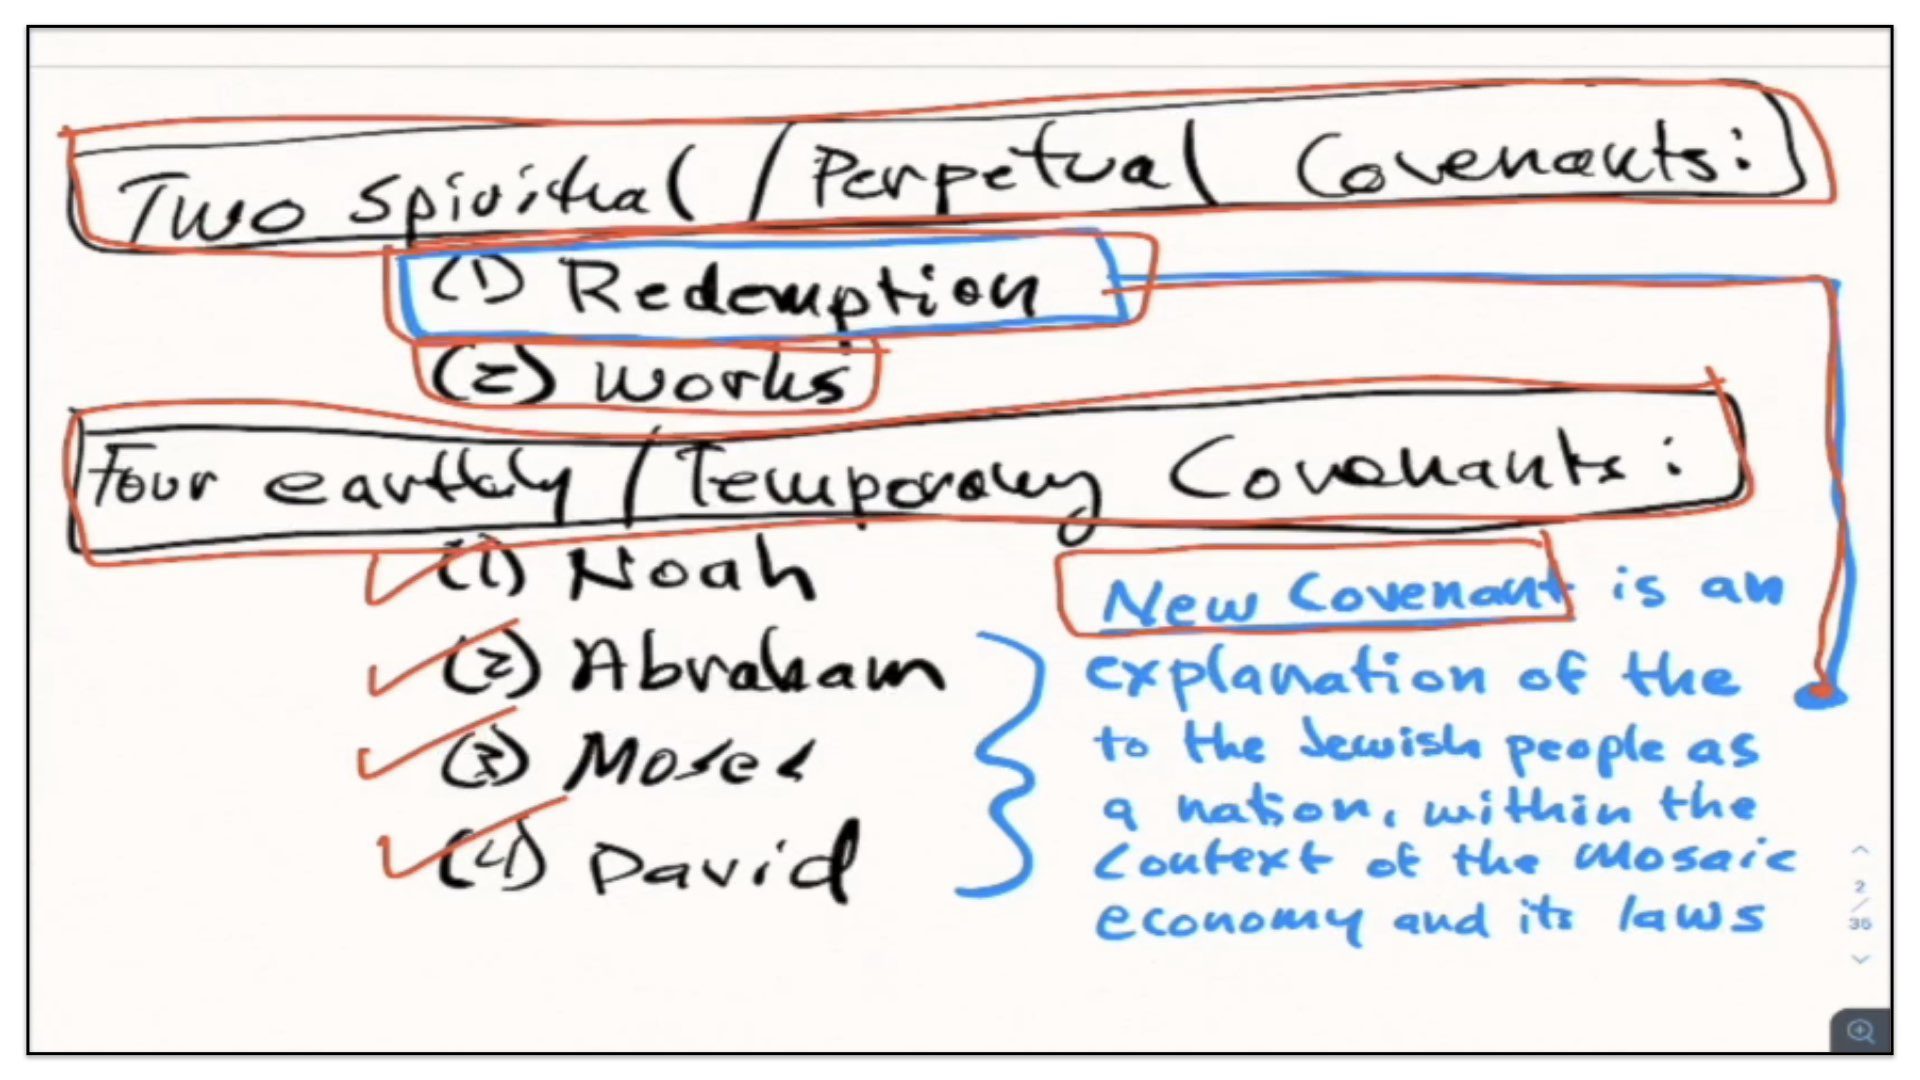 Two Spiritual / Perpetual Covenants:
(1) Redemption
(2) Works
Four earthly / Temporary Covenants:
(1) Noah
(2) Abraham
(3) Moses
(4) David
New Covenant is an
explanation of the
to the Jewish people as
a nation, within the
context of the Mosaic
economy and its laws
2
/
35